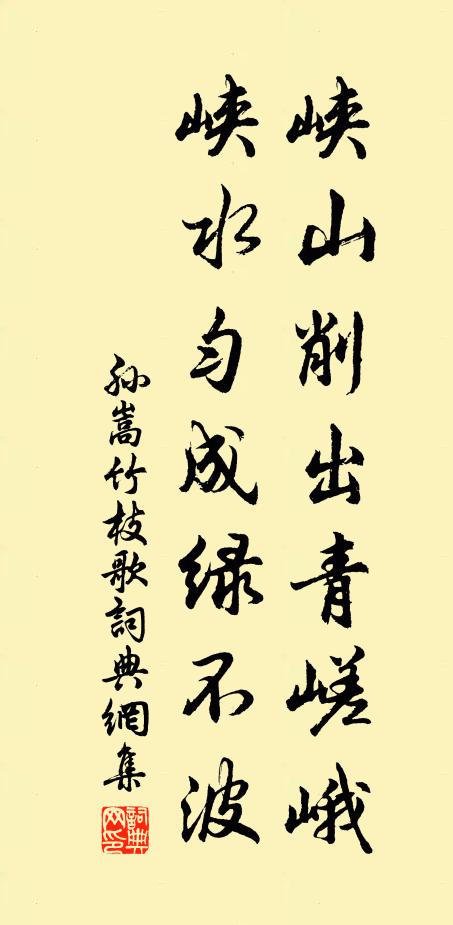 峡山削出青嵯峨
峡水匀成绿不波
孙嵩竹枝歌詞典網集
詞典
网印